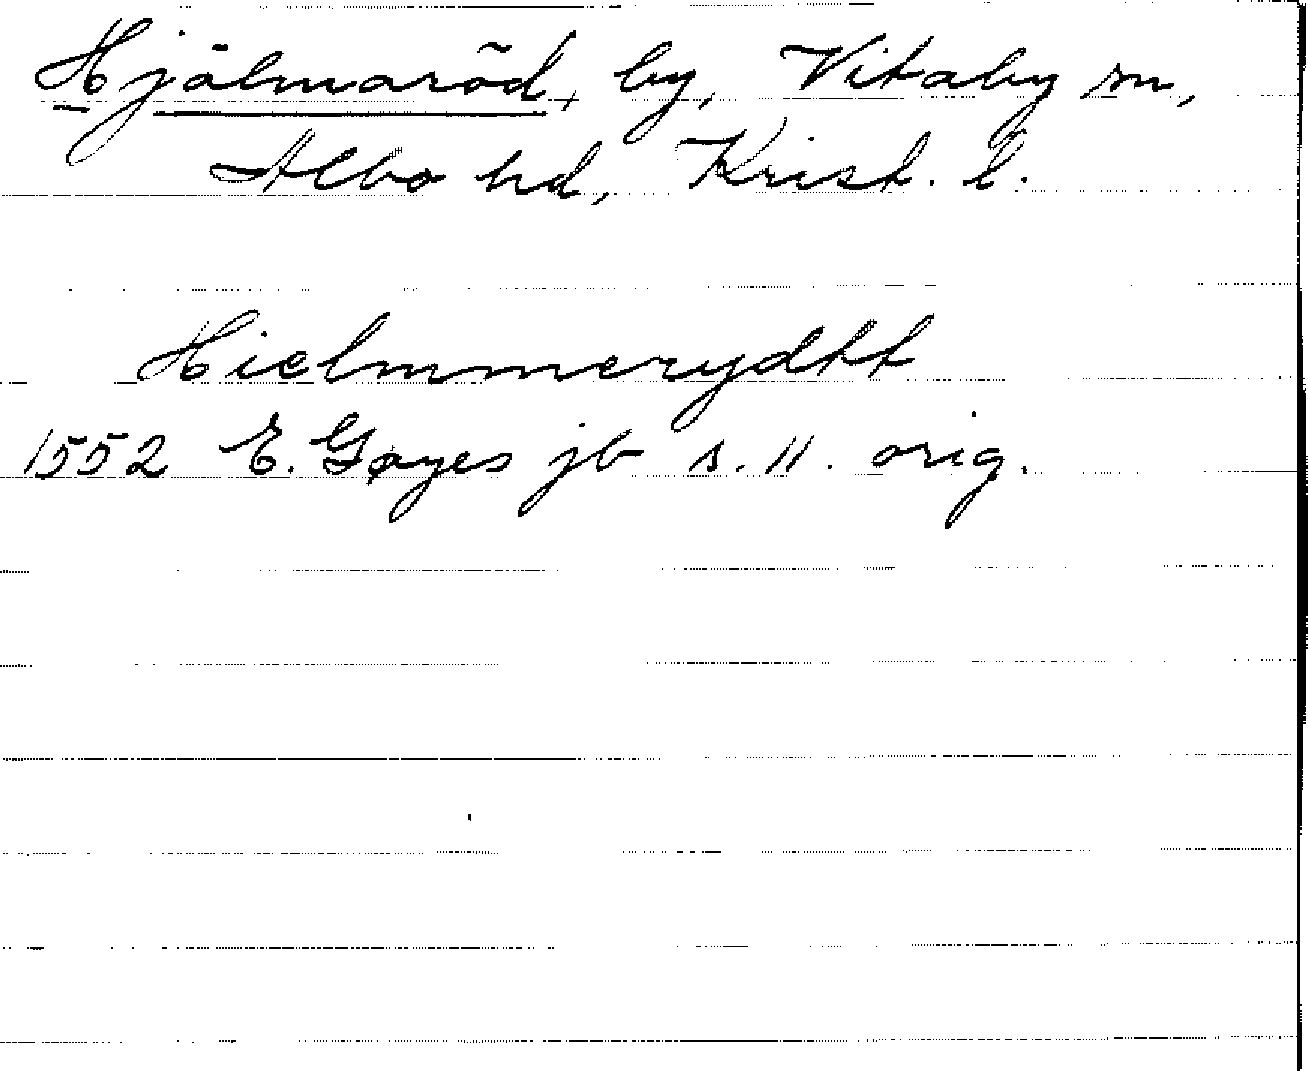 Hjälmaröd, by, Vitaby sn,
Albo hd, Krist. l.
Hielmmerydtt
1552 E. Gøyes jb s. 11. orig.